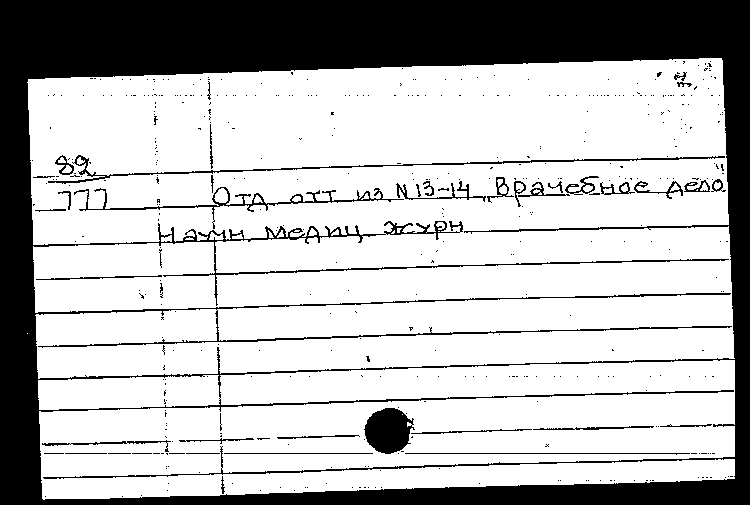 82
777 Отд. отт из N 13-14 „Врачебное дело"
Научн. медиц. журн